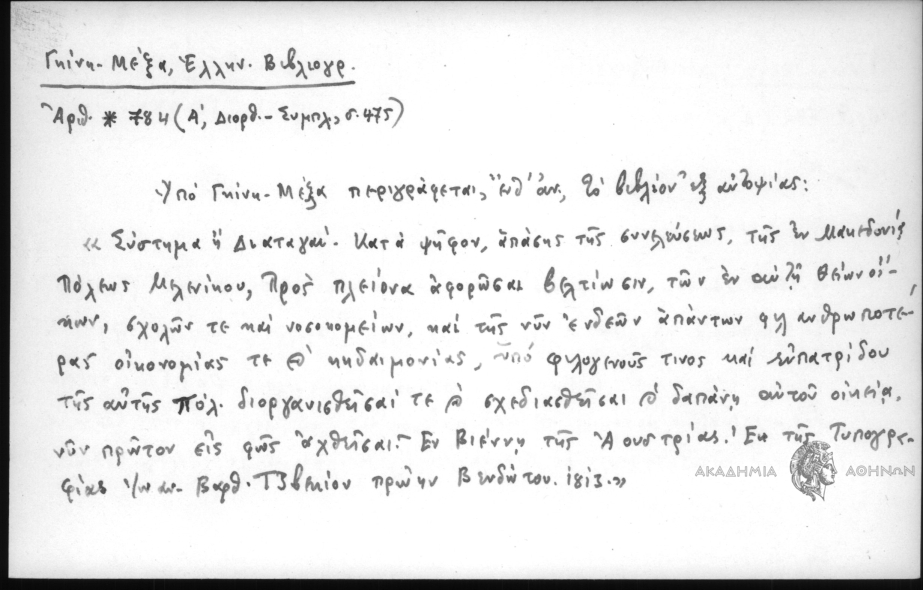 Γκίνη - Μέξα, Ἑλλην. Βιβλιογρ.
Ἀριθ. * 784 (Α΄, Διορθ. - Συμπλ., σ. 475)
Ὑπό Γκίνη - Μέξα περιγράφεται, τό βιβλίον ἐξ αὐτοψίας:
« Σύστημα ἤ Διαταγαί. Κατά ψῆφον, ἁπάσης τῆς συνελεύσεως, τῆς ἐν Μακεδονίᾳ
Πόλεως Μελενίκου, Πρός πλείονα ἀφορῶσαι βελτίωσιν, τῶν ἐν αὐτῇ θείων οἴ-
κων, σχολῶν τε καί νοσοκομείων, καί τῆς νῦν ἐνδεῶν ἁπάντων φιλανθρωποτέ-
ρας οἰκονομίας τε ϗ κηδαιμονίας, ὑπό φιλογενοῦς τινος καί εὐπατρίδου
τῆς αὐτῆς πόλ. διοργανισθεῖσαί τε ϗ σχεδιασθεῖσαι ϗ δαπάνῃ αὐτοῦ οἰκείᾳ,
νῦν πρῶτον εἰς φῶς ἀχθεῖσαι. Ἐν Βιέννῃ τῆς Ἀουστρίας. Ἐκ τῆς Τυπογρα-
φίας Ἰωαν. Βαρθ. Τζβεκίου πρώην Βενδώτου. 1813. »
ΑΚΑΔΗΜΙΑ ΑΘΗΝΩΝ